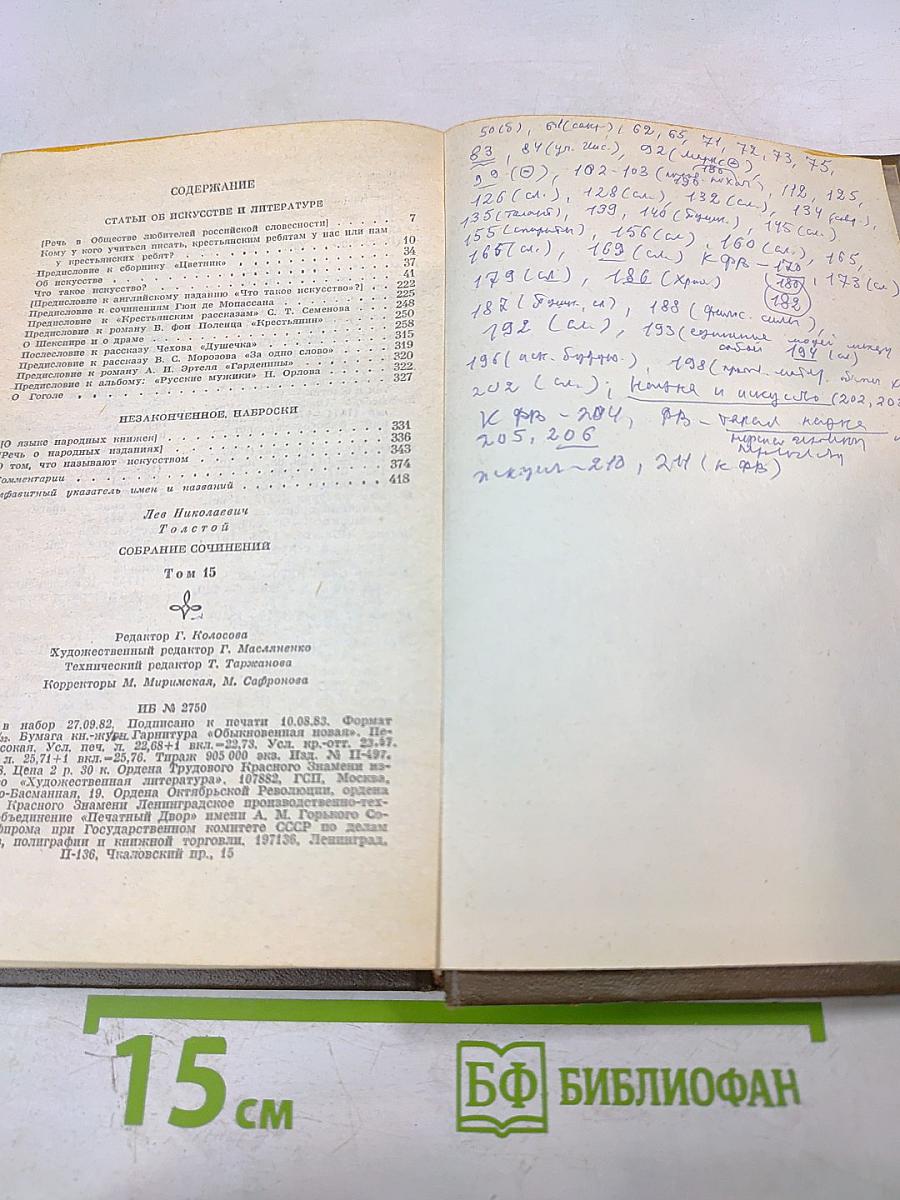 СОДЕРЖАНИЕ
СТАТЬИ ОБ ИСКУССТВЕ И ЛИТЕРАТУРЕ
[Речь в Обществе любителей российской словесности] . . . . . 7
Кому у кого учиться писать, крестьянским ребятам у нас или нам
у крестьянских ребят? . . . . . 10
Предисловие к сборнику «Цветник» . . . . . 34
Об искусстве . . . . . 37
Что такое искусство? . . . . . 41
[Предисловие к английскому изданию «Что такое искусство»?] 222
Предисловие к сочинениям Гюи де Мопассана . . . . . 225
Предисловие к «Крестьянским рассказам» С. Т. Семенова . 248
Предисловие к роману В. фон Поленца «Крестьянин» . . 250
О Шекспире и о драме . . . . . 258
Послесловие к рассказу Чехова «Душечка» . . . . . 315
Предисловие к рассказу В. С. Морозова «За одно слово» . . 319
Предисловие к роману А. И. Эртеля «Гарденины» . . . 320
Предисловие к альбому: «Русские мужики» Н. Орлова . . 322
О Гоголе . . . . . 327
НЕЗАКОНЧЕННОЕ, НАБРОСКИ
[О языке народных книжек] . . . . . 331
[Речь о народных изданиях] . . . . . 336
О том, что называют искусством . . . . . 343
Комментарии . . . . . 374
лфавитный указатель имен и названий . . . . . 418
Лев Николаевич
Толстой
СОБРАНИЕ СОЧИНЕНИЙ
Том 15
Редактор Г. Колосова
Художественный редактор Г. Масляненко
Технический редактор Т. Таржанова
Корректоры М. Миримская, М. Сафронова
ИБ № 2750
в набор 27.09.82. Подписано к печати 10.08.83. Формат
/32. Бумага кн.-журн. Гарнитура «Обыкновенная новая». Пе-
сокая. Усл. печ. л. 22,68+1 вкл.=22,73. Усл. кр.-отт. 23,47.
л. 25,71+1 вкл.=25,76. Тираж 905 000 экз. Изд. № II-497.
8. Цена 2 р. 30 к. Ордена Трудового Красного Знамени из-
о «Художественная литература», 107882, ГСП, Москва,
о-Басманная, 19. Ордена Октябрьской Революции, ордена
Красного Знамени Ленинградское производственно-тех-
объединение «Печатный Двор» имени А. М. Горького Со-
фпрома при Государственном комитете СССР по делам
, полиграфии и книжной торговли. 197136, Ленинград,
П-136, Чкаловский пр., 15
50(б), 61 62, 65, 71, 72, 73, 75,
83, 84 92
99 (–), 102-103 112, 125,
126(сл.), 128(сл.), 132(сл.), 134
135(талант), 139, 140 145(сл.)
155 156(сл), 160(сл.), 165,
165(сл.), 169(сл) К ФВ – 170 180 182, 173(сл)
179(сл), 186
187 188
192 (сл.), 193(единение людей между
собой 194(сл)
196 198
202 (сл.); Наука и искусство (202, 203
К ФВ – 204, ФВ – наука
205, 206
210, 211 (К ФВ)
15 см
БФ БИБЛИОФАН